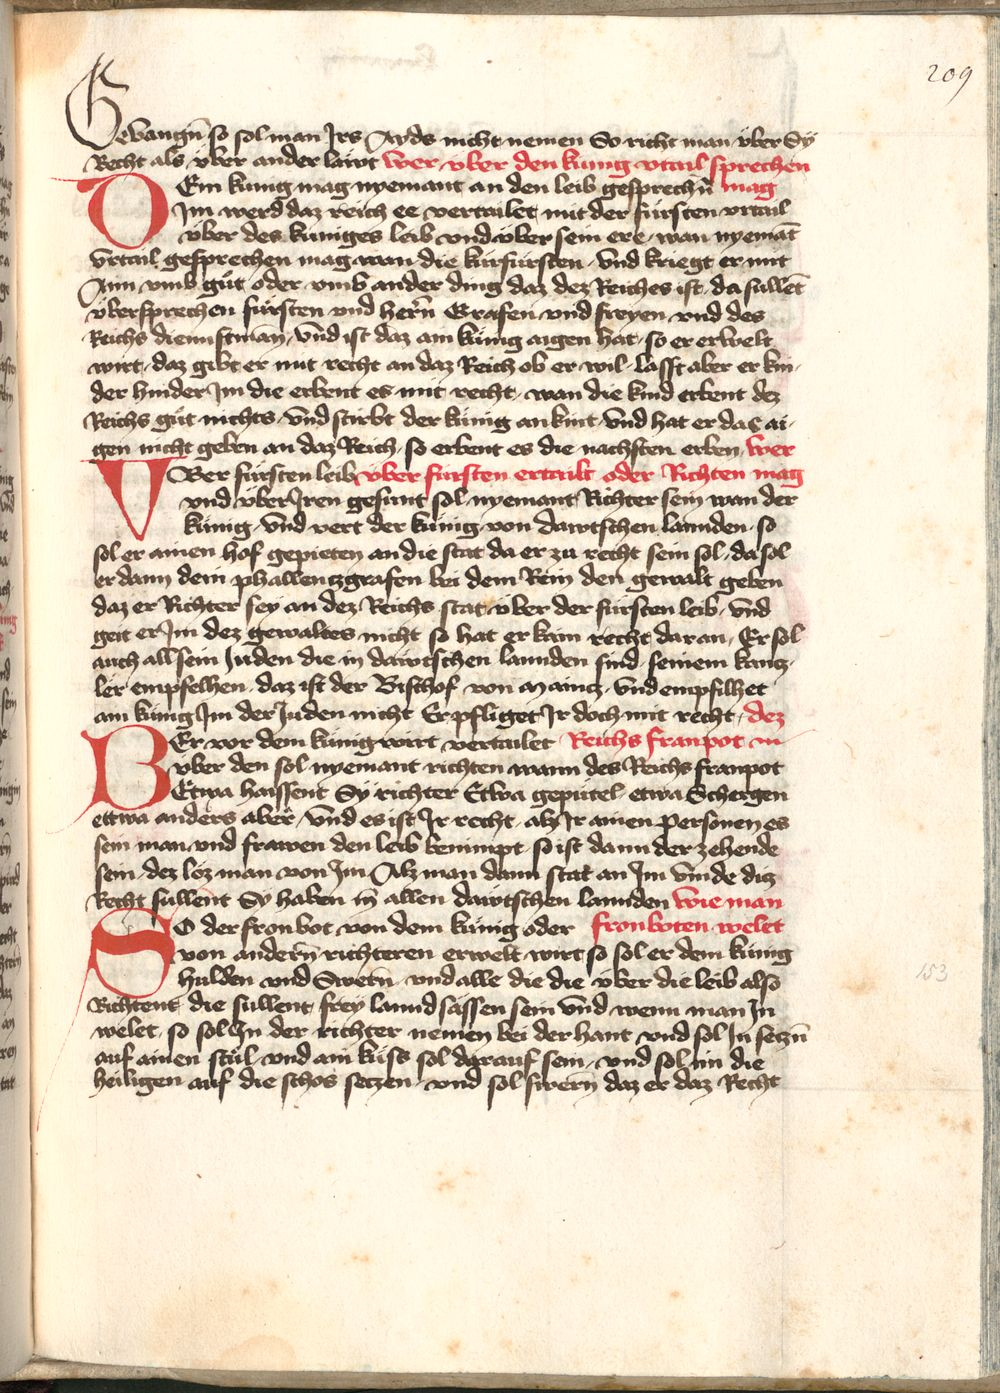 209
Gevangn̄ so sol man Jrs Ayds nicht nemen So richt man v̈ber Sÿ
Recht als v̈ber ander läwt wer vber den kunig vrtail sprechen
Dem kunig mag nyemant an den leib gesprechn̄ mag
Jm werd daz reich ee vertailet mit der fürsten vrtail
v̈ber des küniges leib vnd v̈ber sein ere / wan nyemāt
vrtail gesprechen mag wan die kürfürsten / vnd kriegt er mit
Aim vmb güt oder vmb ander ding daz dez Reiches ist / da süllēt
v̈bersprechen fürsten vnd herrn̄ Grafen vnd freyen vnd des
Reichs diennstman / vnd ist daz am künig aigen hat / so er erwelt
wirt / daz gibt er mit recht an daz Reich ob er wil / lasst aber er kin-
der hinder Jm die erbent es mit recht / wan die kind erbent dez
Reichs güt nichts / vnd stirbt der künig an kint / vnd hat er das ai-
gen nicht geben an daz Reich / so erbent es die nachsten erben / wer
VBer fürsten leib v̈ber fürsten ertailt oder Richten mag
vnd v̈ber Jren gesunt sol nyemant Richter sein wan der
künig / vnd vert der künig von dawtschen lannden / so
sol er ainen hof gepieten an die stat da er zu recht sein sol / da sol
er dann dem phallentzgrafen bei dem Rein den gewalt geben
daz er Richter sey an dez Reichs stat v̈ber der fürsten leib / vnd
geit er Jm dez gewaltes nicht so hat er kain recht daran / Er sol
auch all sein Juden die in dawtschen lannden sind / seinem kantz-
ler empfelhen / daz ist der Bischof von Maincz / vnd empfilhet
am künig Jm der Juden nicht Er pfliget Jr doch mit recht / dez
WEr vor dem künig wirt vertailet Reichs franpot
v̈ber den sol nyemant richten wann des Reichs franpot
Etwa haissent Sÿ richter Etwa gepütel etwa Schergen
ettwa anders aber / vnd es ist Jr recht / alz Jr ainen personen es
sein man vnd frawen den leib benimpt / so ist dann der zehende
sein / dez löz man von Jm Alz man dann stat an Jm vinde diz
Recht süllent Sy haben in allen dawtschen lannden wie man
SO der fronbot von dem künig oder fronboten welet
von andern̄ richteren erwelt wirt so sol er dem künig
hulden vnd Swern̄ / vnd alle die die v̈ber die leib also
Richtent die süllent frey lanndsässen sein vnd wenn man Jn
welet / so sol Jn der richter nemen bei der hant vnd sol Jn setzn̄
auf ainen stül / vnd ain küss sol darauf sein / vnd sol im die
heiligen auf die schos setzen / vnd sol swern̄ daz er daz Recht
153